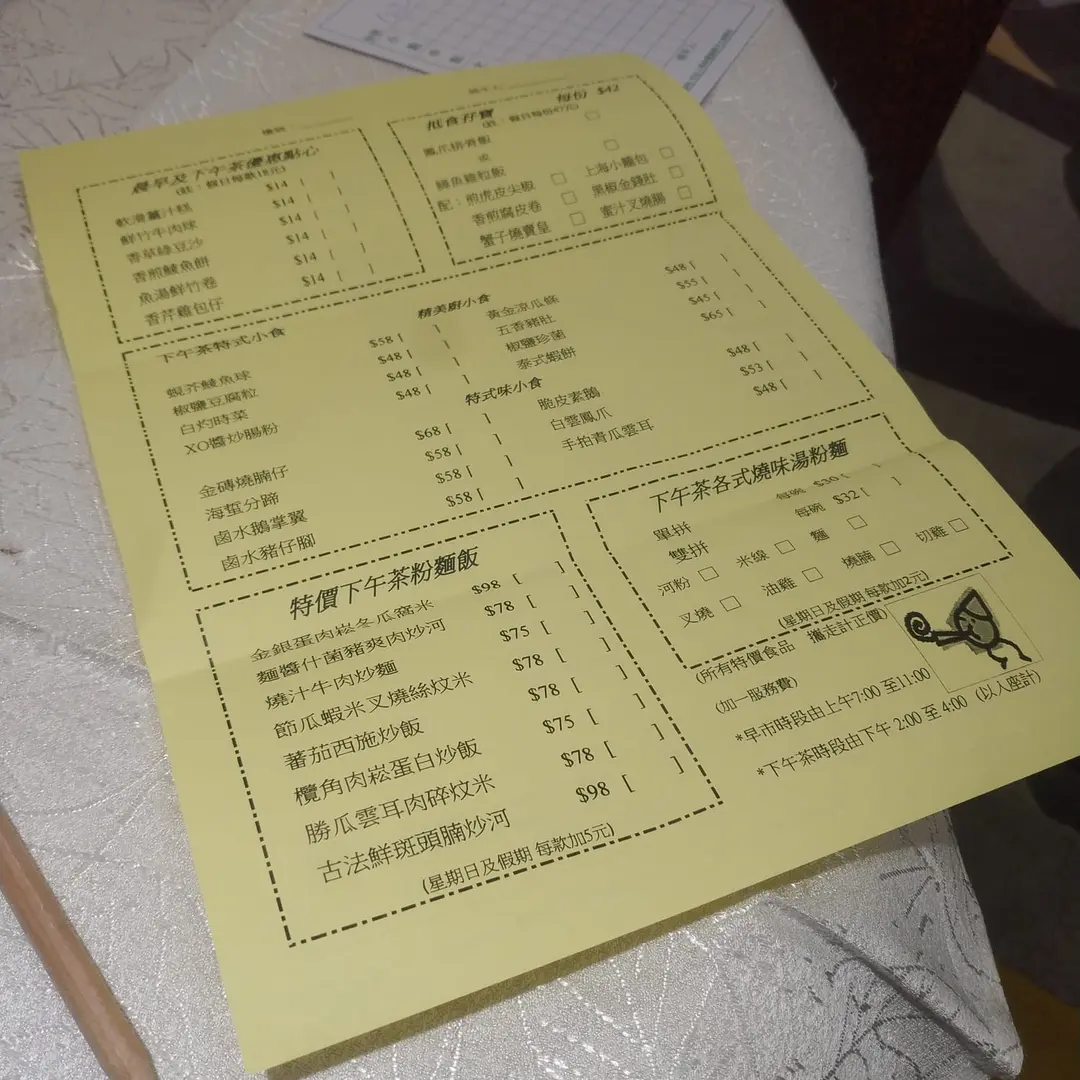 晨早及下午茶優惠點心
(註: 假日每款18元)
軟滑薑汁糕 $14 [ ]
鮮竹牛肉球 $14 [ ]
香草綠豆沙 $14 [ ]
香煎鯪魚餅 $14 [ ]
魚湯鮮竹卷 $14 [ ]
香芹雞包仔
抵食孖寶 每份 $42
鳳爪排骨飯 □
或
雞粒飯 □
配：煎虎皮尖椒 □ 上海小籠包 □
香煎腐皮卷 □ 黑椒金錢肚 □
蟹子燒賣皇 □ 蜜汁叉燒腸 □
下午茶特式小食
蜆芥鯪魚球 $58 [ ]
椒鹽豆腐粒 $48 [ ]
白灼時菜 $48 [ ]
XO醬炒腸粉 $48 [ ]
精美廚小食
黃金涼瓜條 $48 [ ]
五香豬肚 $55 [ ]
椒鹽珍菌 $45 [ ]
泰式蝦餅 $65 [ ]
特式味小食
金磚燒腩仔 $68 [ ]
海蜇分蹄 $58 [ ]
鹵水鵝掌翼 $58 [ ]
鹵水豬仔腳 $58 [ ]
脆皮素鵝 $48 [ ]
白雲鳳爪 $53 [ ]
手拍青瓜雲耳 $48 [ ]
特價下午茶粉麵飯
金銀蛋肉崧冬瓜窩米 $98 [ ]
麵醬什菌豬爽肉炒河 $78 [ ]
燒汁牛肉炒麵 $75 [ ]
節瓜蝦米叉燒絲炆米 $78 [ ]
蕃茄西施炒飯 $78 [ ]
欖角肉崧蛋白炒飯 $75 [ ]
勝瓜雲耳肉碎炆米 $78 [ ]
古法鮮斑頭腩炒河 $98 [ ]
(星期日及假期 每款加5元)
下午茶各式燒味湯粉麵
單拼 每碗 $30 [ ]
雙拼 每碗 $32 [ ]
河粉 □ 米線 □ 麵 □
叉燒 □ 油雞 □ 燒腩 □ 切雞 □
(星期日及假期 每款加2元)
(所有特價食品 攜走計正價)
(加一服務費)
*早市時段由上午7:00 至11:00
*下午茶時段由下午 2:00 至 4:00 (以入座計)